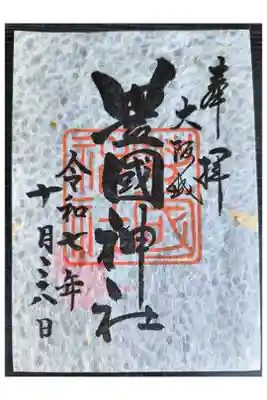 奉拝
大阪城
豊國神社
令和七年
十月二八日